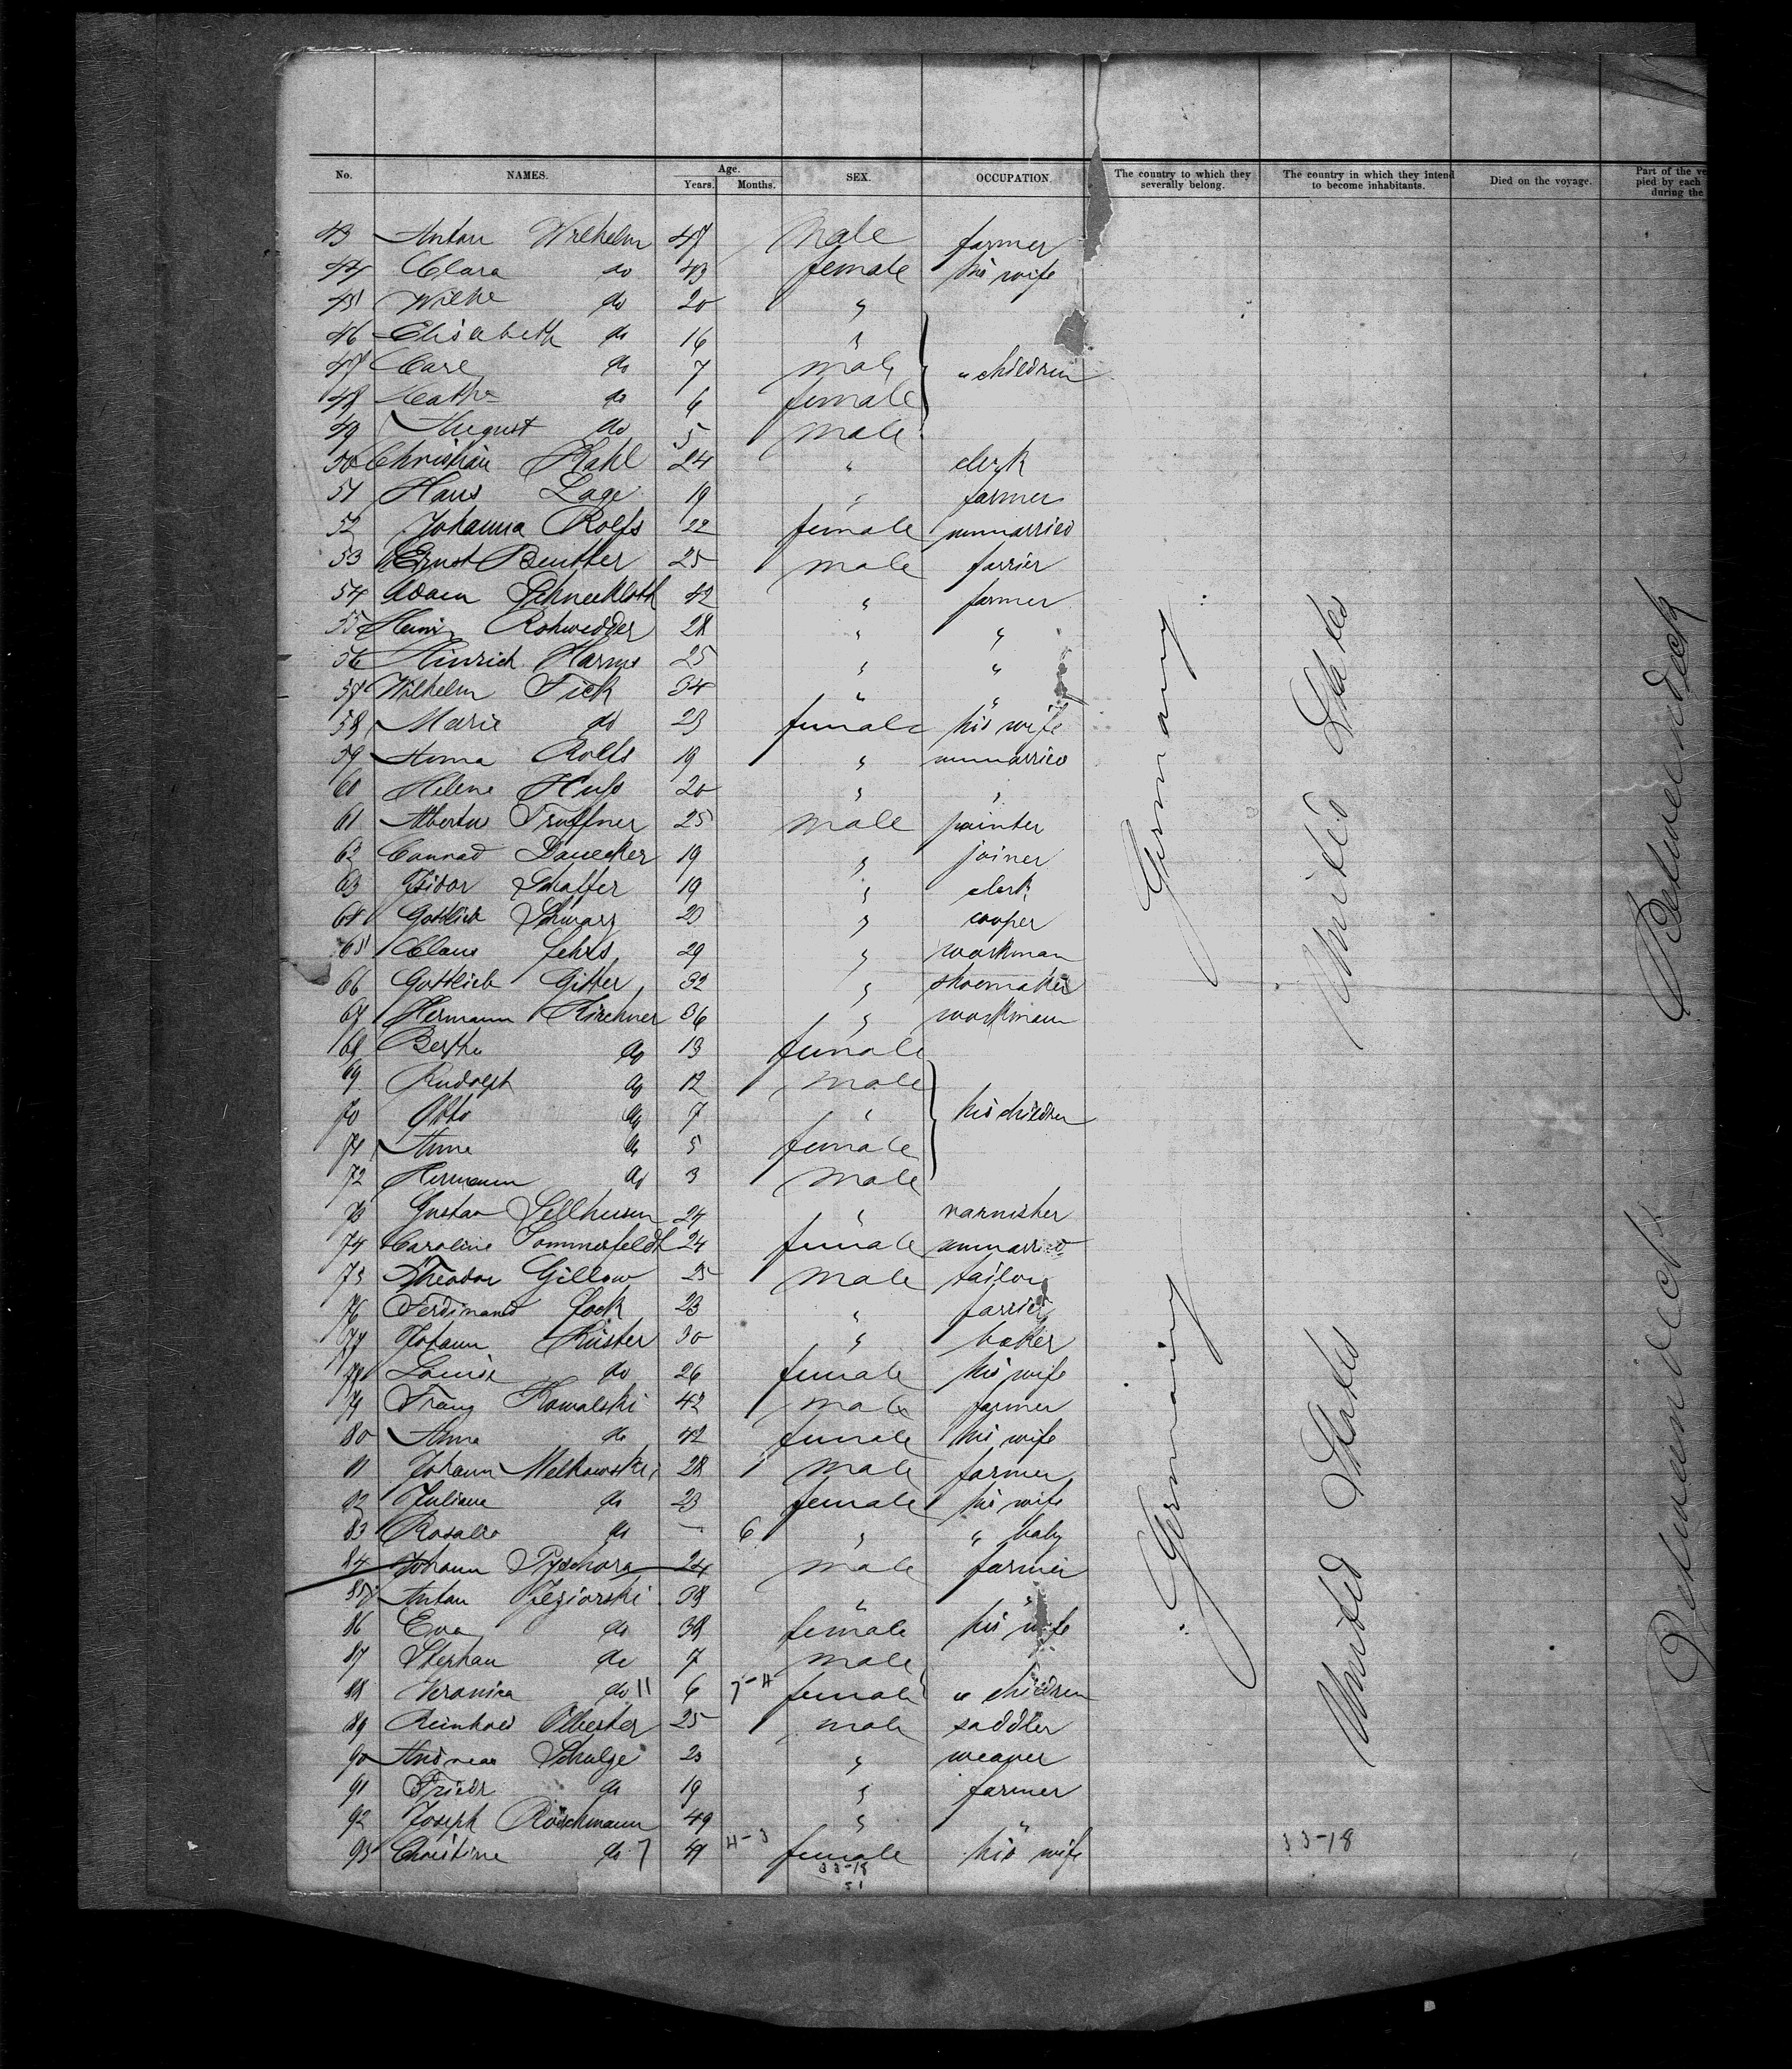 No. NAMES. Age. Years. Months. SEX. OCCUPATION. The country to which they severally belong. The country in which they intend to become inhabitants. Died on the voyage. Part of the ve pied by each during the
43 Anton Wilhelm 47 male farmer
44 Clara do 43 female his wife
45 do 20 "
46 Elisabeth do 16 "
47 Carl do 7 male " children
48 Cathe do 6 female
49 August do 5 male
50 Christian Kahl 24 " clerk
51 Hans Lage 19 " farmer
52 Johanna Rolfs 22 female unmarried
53 Ernst Beutler 25 male farrier
54 Adam Schneekloth 42 " farmer
55 Heinr Rohwedder 28 " "
56 Hinrich Harms 25 " "
57 Wilhelm Fick 34 " "
58 Marie do 23 female his wife
59 Anna Rolfs 19 " unmarried
60 Helene 20 " "
61 25 male painter
62 Conrad 19 " joiner
63 Isidor Schaffer 19 " clerk
64 Gottlieb Schwarz 23 " cooper
65 Claus Jehrs 29 " workman
66 Gottlieb Gitter 32 " shoemaker
67 Hermann Kirchner 36 " workman
68 Bertha do 13 female
69 Rudolph do 12 male
70 Otto do 7 " his children
71 Anna do 5 female
72 Hermann do 3 male
73 Gustav Sellhusen 24 " varnisher
74 Caroline Sommerfeldt 24 female unmarried
75 Theodor Gillow 25 male tailor
76 Ferdinand 23 " farrier
77 Johann Küster 30 " baker
78 Louise do 26 female his wife
79 Franz Kowalski 42 male farmer
80 Anna do 42 female his wife
81 Johann Melkowski 28 male farmer
82 Juliane do 23 female his wife
83 Rosalie do - 6 " " baby
84 Johann 24 male farmer
85 Anton Jeziorski 38 " "
86 Eva do 38 female his wife
87 Stephan do 7 male
88 Veronica do 11 6 7-H female " children
89 Reinhold 25 male saddler
90 Andreas Schulze 23 " weaver
91 Friedr do 19 " farmer
92 Joseph Röschmann 49 " "
93 Christine do 7 H-3 female his wife
33-18
51
33-18
Germany
Germany
United States
United States
Between deck
Between deck